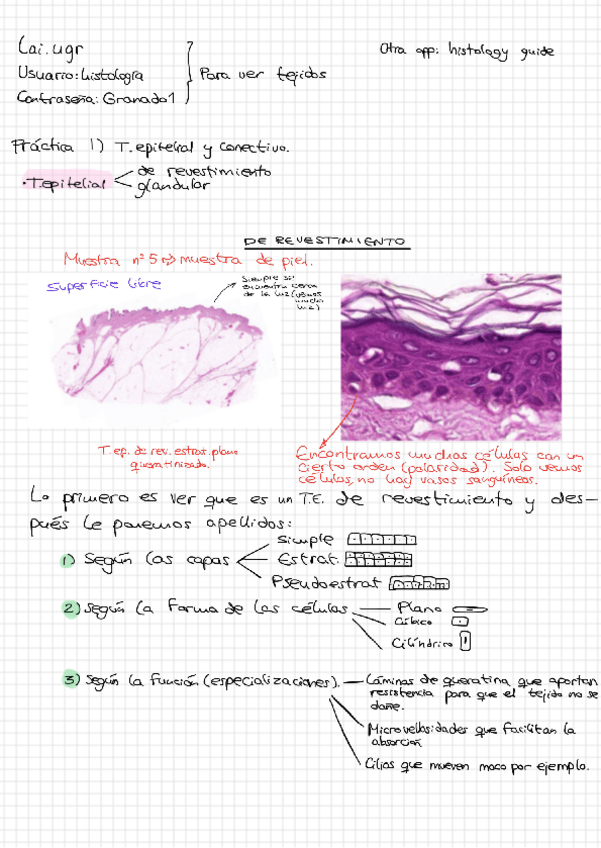 Lai.ugr
Usuario: histología
Contraseña: Granado1
Para ver tejidos
Otra app: histology guide
Práctica 1) T. epitelial y conectivo.
·T. epitelial
de revestimiento
glandular
DE REVESTIMIENTO
Muestra nº 5 → muestra de piel.
Superficie libre
Siempre se
encuentra cerca
de la luz (vemos
mucha
luz)
T. ep. de rev. estrat. plano
queratinizado.
Encontramos muchas células con un
cierto orden (polaridad). Solo vemos
células, no hay vasos sanguíneos.
Lo primero es ver que es un T.E. de revestimiento y des-
pués le ponemos apellidos:
1) Según las capas
Simple
Estrat.
Pseudoestrat
2) Según la forma de las células
Plano
Cúbico
Cilíndrico
3) Según la función (especializaciones).
Láminas de queratina que aportan
resistencia para que el tejido no se
dañe.
Microvellosidades que facilitan la
absorción
Cilios que mueven moco por ejemplo.